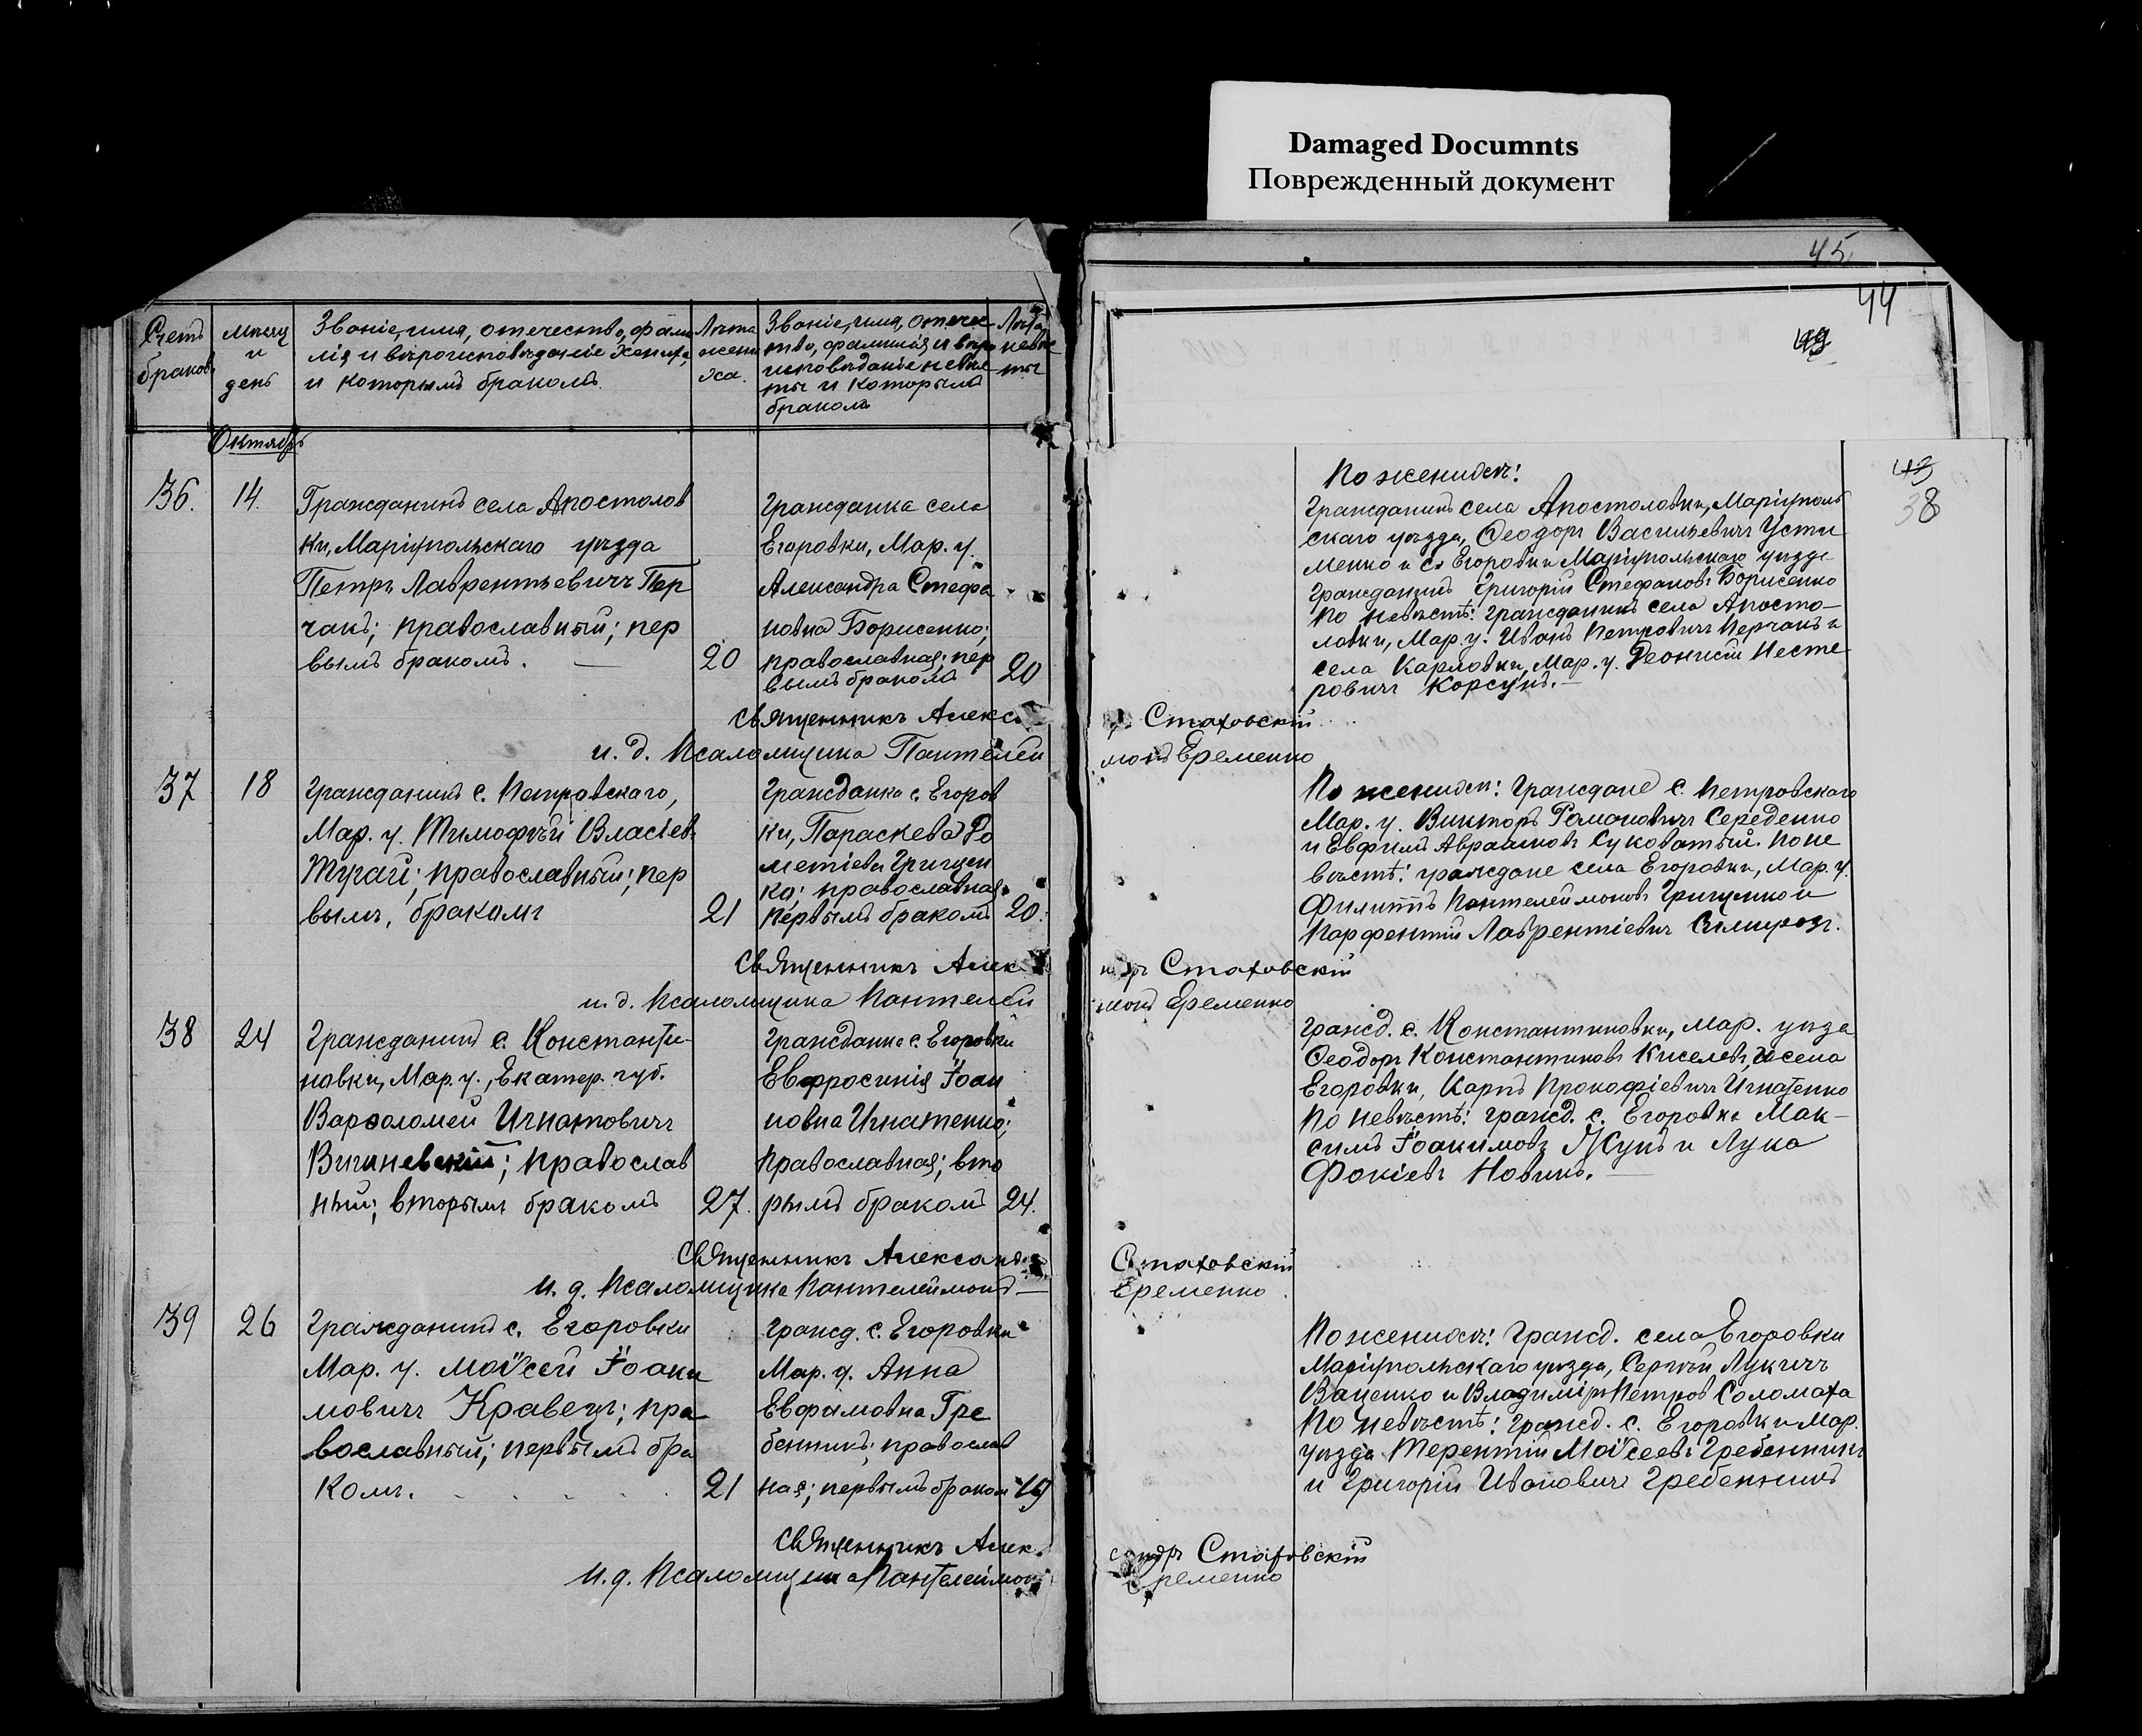 Damaged Documnts
Поврежденный документ
45
44
Счетъ браковъ
мѣсяц и день
Званіе, имя, отчество, фами
лія и вѣроисповѣданіе жениха,
и которымъ бракомъ.
Лѣта жени ха.
Званіе, имя, отчес
тво, фамилія и вѣро
исповѣданіе невѣс
ты и которымъ
бракомъ
Лѣта невѣс ты
Октябрь
36.
14.
Гражданинъ села Апостолов
ки, Маріупольскаго уѣзда
Петръ Лаврентьевичъ Пер
чакъ; православный; пер
вымъ бракомъ.
20
Гражданка села
Егоровки, Мар. у.
Александра Стефа
новна Борисенко;
православная; пер
вымъ бракомъ
20
Священникъ Алекс
и. д. Псаломщика Пантелей
37
18
Гражданинъ с. Петровскаго,
Мар. у. Тимофѣй Власіев
Тугай; православный; пер
вымъ, бракомъ
21
Гражданка с. Егоров
ки, Параскева До
метіева Грищен
ко; православная
первымъ бракомъ
20.
Священникъ Алек
и. д. Псаломщика Пантелей
38
24
Гражданинъ с. Константи-
новки, Мар. у., Екатер. губ.
Варѳоломей Игнатовичъ
Вишневскій; православ
ный; вторымъ бракомъ
27.
Гражданка с. Егоровки
Евфросинія Іоан
новна Игнатенко;
православная; вто
рымъ бракомъ
24.
Священникъ Александ
И. д. Псаломщика Пантелеймонъ
39
26
Гражданинъ с. Егоровки
Мар. у. Моѵсей Іоаки
мовичъ Кравецъ; пра
вославный; первымъ бра
комъ.
21
Гражд. с. Егоровки
Мар. у. Анна
Евфимовна Гре
бенникъ; православ
ная; первымъ браком
19
Священникъ Алек
И. д. Псаломщика Пантелеймон
38
По женихѣ:
Гражданинъ села Апостоловки, Маріуполь
скаго уѣзда, Ѳеодоръ Васильевичъ Усти
менко и с. Егоровки Маріупольскаго уѣзда
гражданинъ Григорій Стефановъ Борисенко
По невѣстѣ: гражданинъ села Апосто-
ловки, Мар. у. Иванъ Петровичъ Перчакъ и
села Карловки, Мар. у. Деонисій Несте
ровичъ Корсунъ.
Стаховскій
монъ Еременко
По женихѣ: Граждане с. Петровскаго
Мар. у. Викторъ Романовичъ Середенко
и Евфимъ Авраамовъ Суковатый. По не
вѣстѣ: граждане села Егоровки, Мар. у.
Филиппъ Пантелеймоновъ Грищенко и
Парфентій Лаврентіевичъ
Стаховскій
монъ Еременко
Гражд. с. Константиновки, Мар. уѣзда
Ѳеодоръ Константиновъ Киселевъ, и села
Егоровки, Карпъ Прокофіевичъ Игнатенко
По невѣстѣ: гражд. с. Егоровки Мак-
симъ Іоакимовъ Жукъ и Лука
Фокіевъ Новикъ.
Стаховскій
Еременко
По женихѣ: Гражд. села Егоровки
Маріупольскаго уѣзда, Сергѣй Лукичъ
Ваценко и Владиміръ Петров Соломаха
По невѣстѣ: Гражд. с. Егоровки Мар.
уѣзда Терентій Моѵсеевъ Гребенникъ
и Григорій Ивановичъ Гребенникъ
сандръ Стаховскій
Еременко